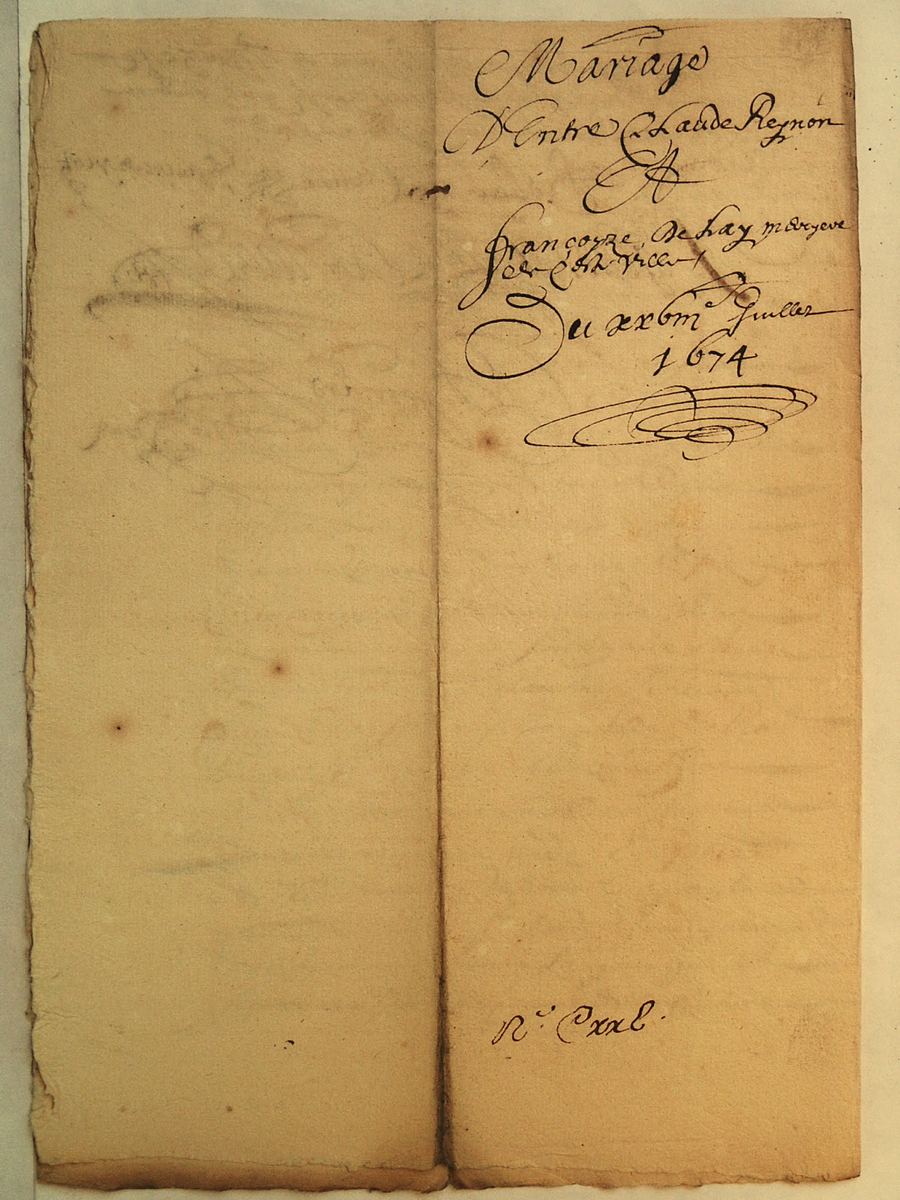 Mariage
D'Entre Claude Reynon
Et
francoyze De Lay
de
Du xxbme Juillet
1674
No